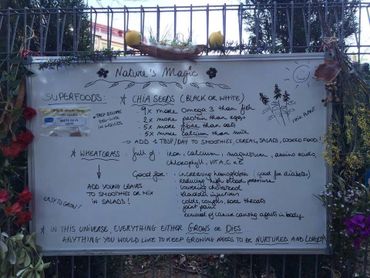 Nature's Magic
SUPERFOODS:
* CHIA SEEDS (BLACK OR WHITE)
9x more Omega 3 than fish
2x more protein than eggs
5x more fibre than oats
5x more calcium than milk
→ ADD 1 TBSP/DAY TO SMOOTHIES, CEREAL, SALADS, COOKED FOOD!
* WHEATGRASS: full of iron, calcium, magnesium, amino acids,
chlorophyll, VITA, C & E
ADD YOUNG LEAVES
TO SMOOTHIES OR MIX
IN SALADS!
EASY TO GROW!
Good for: • increasing hemoglobin (good for diabetes)
• reducing high blood pressure
• lowering cholesterol
• bladder injection
• colds, cough, sore throats
• joint pain
• removal of cancer causing agents in body
* IN THIS UNIVERSE EVERYTHING EITHER GROWS OR DIES
ANYTHING YOU WOULD LIKE TO KEEP GROWING NEEDS TO BE NURTURED AND LOVED!